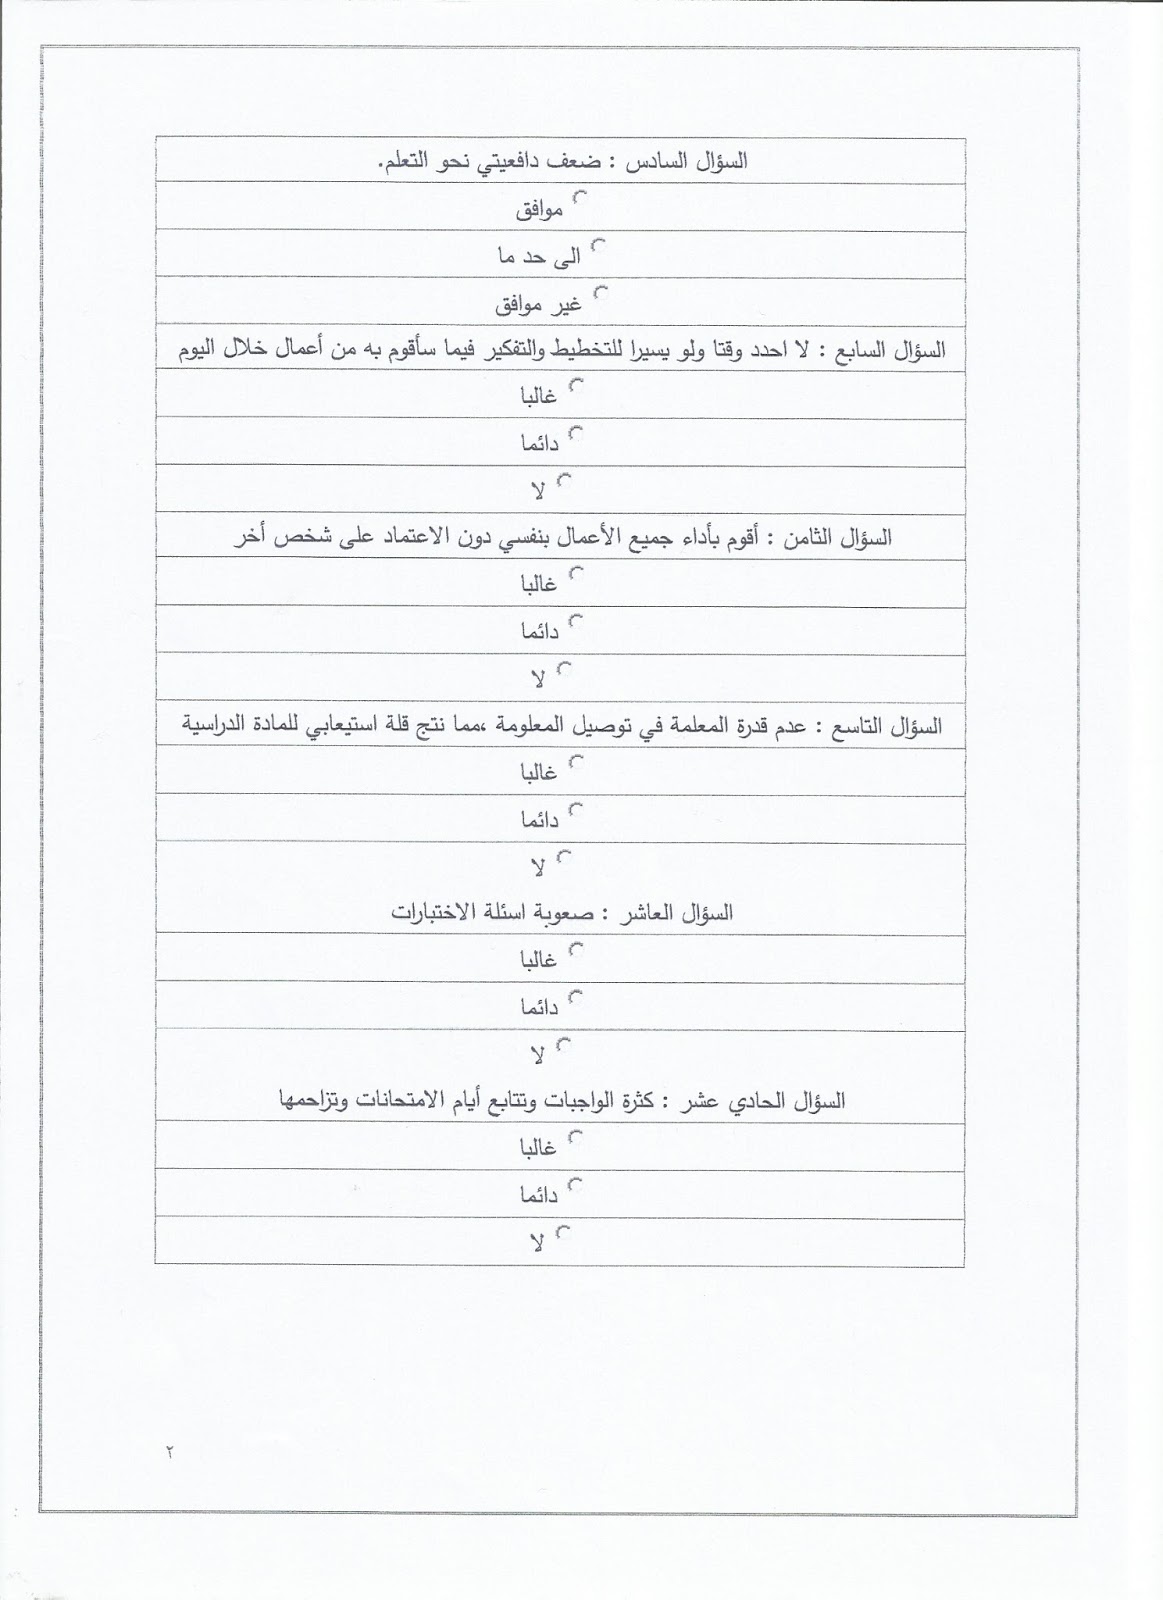 السؤال السادس : ضعف دافعيتي نحو التعلم.
موافق
الى حد ما
غير موافق
السؤال السابع : لا احدد وقتا ولو يسيرا للتخطيط والتفكير فيما سأقوم به من أعمال خلال اليوم
غالبا
دائما
لا
السؤال الثامن : أقوم بأداء جميع الأعمال بنفسي دون الاعتماد على شخص أخر
غالبا
دائما
لا
السؤال التاسع : عدم قدرة المعلمة في توصيل المعلومة ،مما نتج قلة استيعابي للمادة الدراسية
غالبا
دائما
لا
السؤال العاشر : صعوبة اسئلة الاختبارات
غالبا
دائما
لا
السؤال الحادي عشر : كثرة الواجبات وتتابع أيام الامتحانات وتزاحمها
غالبا
دائما
لا
٢